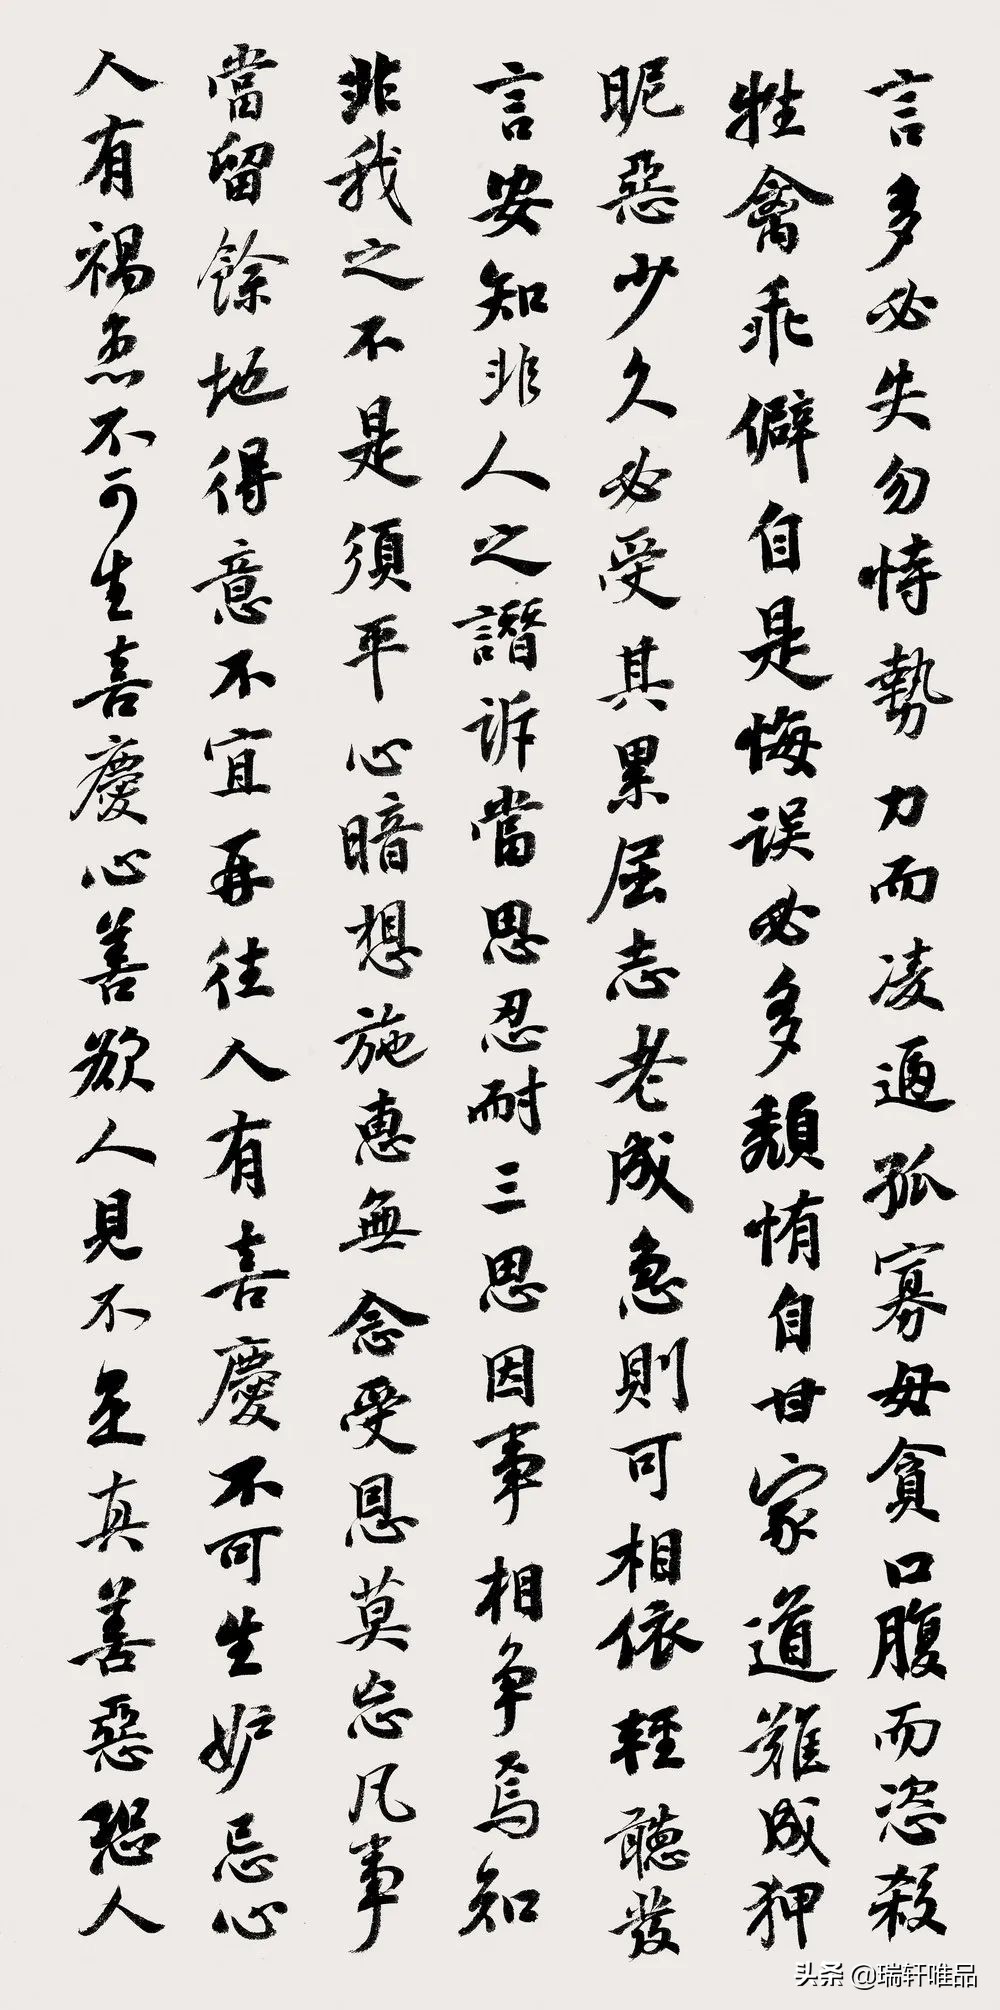 言多必失勿恃勢力而凌逼孤寡毋貪口腹而恣殺
牲禽乖僻自是悔误必多頽惰自甘家道難成狎
昵惡少久必受其累屈志老成急則可相依輕聽發
言安知非人之譖訴當思忍耐三思因事相争焉知
非我之不是須平心暗想施惠無念受恩莫忘凡事
當留餘地得意不宜再往人有喜慶不可生妒忌心
人有禍患不可生喜慶心善欲人見不是真善惡恐人
头条 @瑞轩唯品